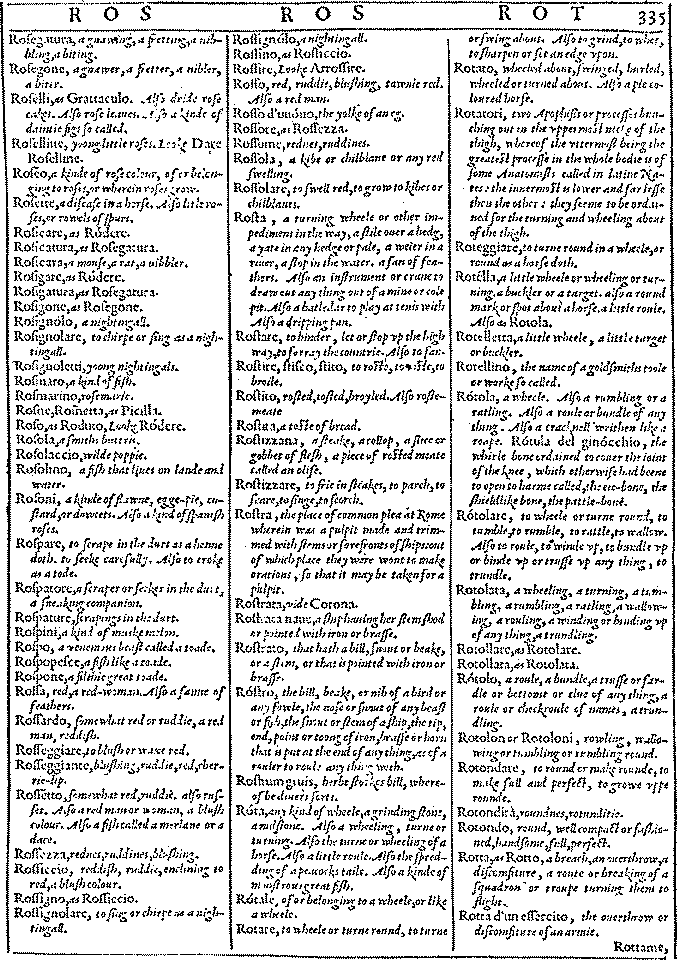 R O S
R O S
R O T
335
Rosegatura, a gnawing, a fretting, a nib-
bling, a biting.
Rosegone, a gnawer, a fretter, a nibler,
a biter.
Roselli, as Grattaculo. Also dride rose
cakes. Also rose leaues. Also a kinde of
daintie figs so called.
Roselline, yoong little roses. Looke Dare
Roselline.
Roseo, a kinde of rose colour, of or belon-
ging to roses, or wherein roses grow.
Rosette, a disease in a horse. Also little ro-
ses, or rowels of spurs.
Rosicare, as Ródere.
Rosicatura, as Rosegatura.
Rosicara, a mouse, a rat, a nibbler.
Rosigare, as Ródere.
Rosigatura, as Rosegatura.
Rosigone, as Rosegone.
Rosignólo, a nightingall.
Rosignolare, to chirpe or sing as a nigh-
tingall.
Rosignoletti, yoong nightingals.
Rosmaro, a kind of fish.
Rosmarino, rosemarie.
Rosne, Rosnetta, as Picilla.
Roso, as Roduto, Looke Ródere.
Rosola, a smelts butterie.
Rosolaccio, wilde poppie.
Rosolino, a fish that liues on lande and
water.
Rosoni, a kinde of flawne, egge-pie, cu-
stard, or dowcets. Also a kind of spanish
roses.
Rospare, to scrape in the durt as a henne
doth. to seeke carefully. Also to croke
as a tode.
Rospatore, a scraper or seeker in the durt,
a sneaking companion.
Rospature, scrapings in the durt.
Rospini, a kind of muske melon.
Rospo, a venemous beast called a toade.
Rospopesce, a fish like a toade.
Rospone, a filthie great toade.
Rossa, red, a red-woman. Also a fanne of
feathers.
Rossardo, somewhat red or ruddie, a red
man, reddish.
Rosseggiare, to blush or waxe red.
Rosseggiante, blushing, ruddie, red, cher-
rie-lip.
Rossetto, somewhat red, ruddie. also rus-
set. Also a red man or woman, a blush
colour. Also a fish called a merlane or a
dace.
Rossezza, rednes, ruddines, blushing.
Rossiccio, reddish, ruddie, enclining to
red, a blush colour.
Rossigno, as Rossiccio.
Rossignolare, to sing or chirpe as a nigh-
tingall.
Rossignólo, a nightingall.
Rossino, as Rossiccio.
Rossire, Looke Arrossire.
Rosso, red, ruddie, blushing, tawnie red.
Also a red man.
Rosso d'unóuo, the yolke of an eg.
Rossore, as Rossezza.
Rossume, rednes, ruddines.
Rossola, a kibe or chilblane or any red
swelling.
Rossolare, to swell red, to grow to kibes or
chilblanes.
Rosta, a turning wheele or other im-
pediment in the way, a stile ouer a hedg,
a gate in any hedge or pale, a weier in a
riuer, a stop in the water. a fan of fea-
thers. Also an instrument or crane to
draw out any thing out of a mine or cole
pit. Also a batledar to play at tenis with
Also a dripping pan.
Rostare, to hinder, let or stop vp the high
way, to forray the countrie. Also to fan.
Rostire, stisco, stito, to roste, to toste, to
broile.
Rostito, rosted, tosted, broyled. Also roste-
meate
Rostita, a toste of bread.
Rostizzana, a steake, a collop, a slice or
gobbet of flesh, a piece of rosted meate
called an olife.
Rostizzare, to frie in steakes, to parch, to
seare, to singe, to scorch.
Rostra, the place of common plea at Rome
wherein was a pulpit made and trim-
med with stems or forefronts of ships, out
of which place they were wont to make
orations, so that it may be taken for a
pulpit.
Rostrata, vide Corona.
Rostrata naue, a ship hauing her stem shod
or pointed with iron or brasse.
Rostrato, that hath a bill, snout or beake,
or a stem, or that is pointed with iron or
brasse.
Róstro, the bill, beake, or nib of a bird or
any fowle, the nose or snout of any beast
or fish, the snout or stem of a ship, the tip,
end, point or toong of iron, brasse or horn
that is put at the end of any thing, as of a
ruler to route any thing with.
Rostrumguis, herbe storkes bill, where-
of be diuers sorts.
Róta, any kind of wheele, a grinding stone,
a milstone. Also a wheeling, turne or
turning. Also the turne or wheeling of a
horse. Also a little route. Also the spred-
ding of a peacocks taile. Also a kinde of
monstrous great fish.
Rótale, of or belonging to a wheele, or like
a wheele.
Rotare, to wheele or turne round, to turne
or swing about. Also to grind, to whet,
to sharpen or set an edge vpon.
Rotato, wheeled about, swinged, hurled,
wheeled or turned about. Also a pie co-
loured horse.
Rotatori, two Apophises or processes bun-
ching out in the vppermost necke of the
thigh, whereof the vttermost being the
greatest processe in the whole bodie is of
some Anatomists called in latine Na-
tes: the innermost is lower and far lesse
then the other: they seeme to be ordai-
ned for the turning and wheeling about
of the thigh.
Roteggiare, to turne round in a wheele, or
round as a horse doth.
Rotélla, a little wheele or wheeling or tur-
ning. a buckler or a target. also a round
mark or spot about a horse. a little route.
Also as Rotola.
Rotelletta, a little wheele, a little target
or buckler.
Rotellino, the name of a goldsmiths toole
or worke so called.
Rótola, a wheele. Also a rumbling or a
ratling. Also a roule or bundle of any
thing. Also a cracknell writhen like a
roape. Rótula del ginócchio, the
whirle bone ordained to couer the ioint
of the knee, which otherwise had beene
to open to harme called, the eie-bone, the
shieldlike bone, the pattle-bone.
Rótolare, to wheele or turne round, to
tumble, to rumble, to rattle, to wallow.
Also to roule, to winde vp, to bundle vp
or binde vp or trusse vp any thing, to
trundle.
Rotolata, a wheeling, a turning, a tum-
bling, a rumbling, a ratling, a wallow-
ing, a rouling, a winding or binding vp
of any thing, a trundling.
Rotollare, as Rotolare.
Rotollata, as Rotolata.
Rótolo, a roule, a bundle, a trusse or far-
dle or bottome or clue of any thing, a
route or checkroule of names, a trun-
dling.
Rotolon or Rotoloni, rowling, wallo-
wing or tumbling or rumbling round.
Rotondare, to round or make rounde, to
make full and perfect, to growe vppe
rounde.
Rotondità, roundnes, rotunditie.
Rotondo, round, well compact or fashio-
ned, handsome, full, perfect.
Rotta, as Rotto, a breach, an ouerthrow, a
discomfiture, a route or breaking of a
squadron or troupe turning them to
flight.
Rotta d'un essercito, the ouerthrow or
discomfiture of an armie.
Rottame,